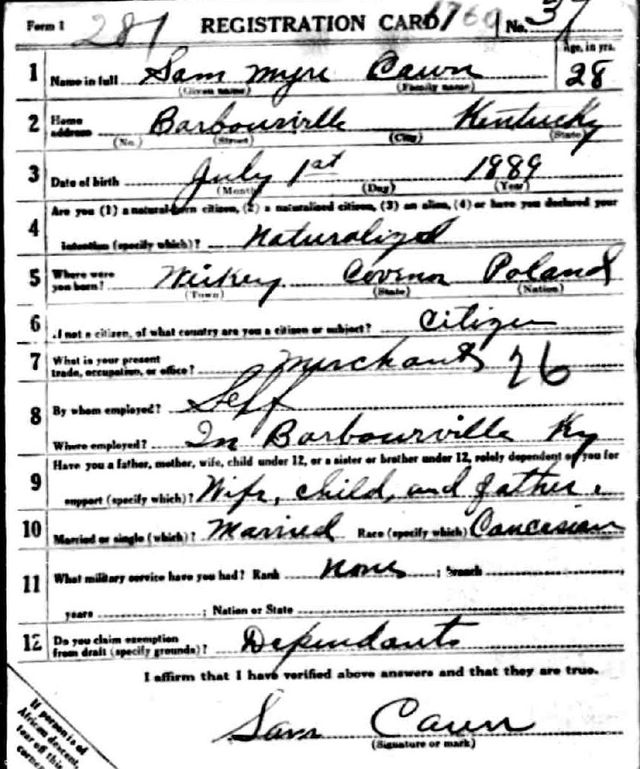 Form 1 287 REGISTRATION CARD 1769 No. 37
1 Name in full Sam Myre Cawn Age, in yrs. 28
(Given name) (Family name)
2 Home address Barbourville Kentucky
(No.) (Street) (City) (State)
3 Date of birth July 1st 1889
(Month) (Day) (Year)
4 Are you (1) a natural-born citizen, (2) a naturalized citizen, (3) an alien, (4) or have you declared your
intention (specify which)? Naturalized
5 Where were you born? Covenor Poland
(Town) (State) (Nation)
6 If not a citizen, of what country are you a citizen or subject? Citizen
7 What is your present trade, occupation, or office? Merchants 26
8 By whom employed? Self
Where employed? In Barbourville Ky
9 Have you a father, mother, wife, child under 12, or a sister or brother under 12, solely dependent on you for
support (specify which)? Wife, child, and father.
10 Married or single (which)? Married Race (specify which) Concasian
11 What military service have you had? Rank None ; branch
years ; Nation or State
12 Do you claim exemption from draft (specify grounds)? Dependants
I affirm that I have verified above answers and that they are true.
Sam Cawn
(Signature or mark)
If person is of
African descent,
tear off this
corner